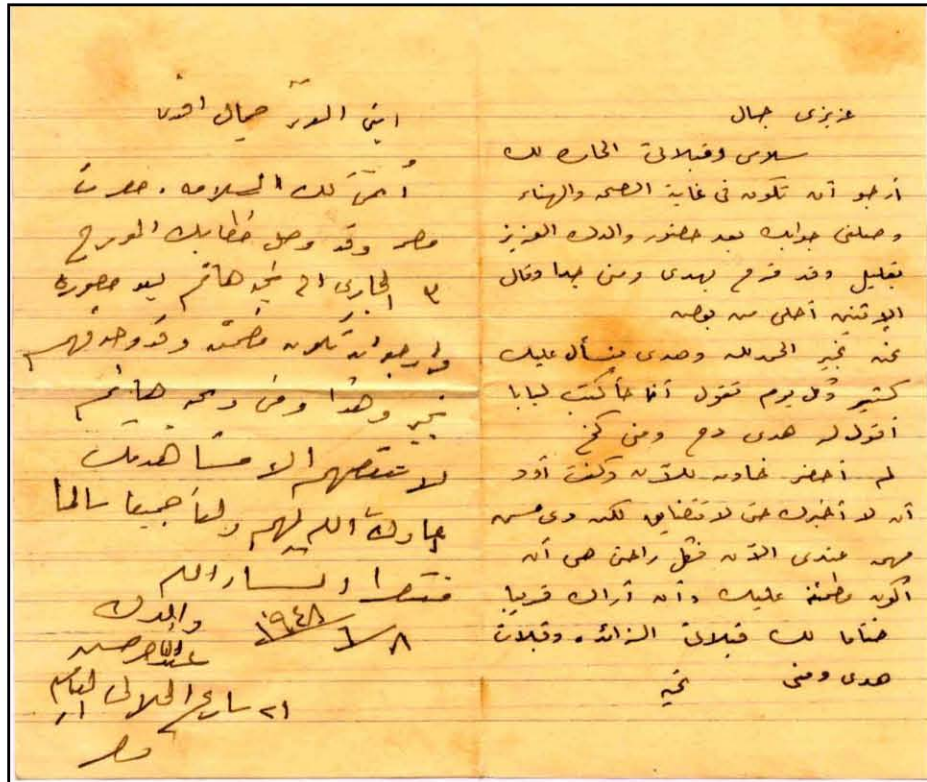 عزيزى جمال
سلامى وقبلاتى الحاره لك
أرجو أن تكون فى غاية الصحه والهناء
وصلنى جوابك بعد حضور والدك العزيز
بقليل وقد فرح بهدى ومنى جدا وقال
الإثنين أحلى من بعض
نحن بخير الحمدلله وهدى بتسأل عليك
كتير وكل يوم تقول أنا حأكتب لبابا
أقول له هدى دح ومنى كخ
لم أحضر خادمه للآن وكنت أود
أن لا أخبرك حتى لا تتضايق لكن دى مش
مهم عندى الآن فكل راحتى هى أن
أكون مطمئنة عليك وأن أراك قريبا
ختاما لك قبلاتى الزائده وقبلات
هدى ومنى تحيه
ابنى العزيز جمال افندى
أتمنى لك السلامه. حضرت
مصر وقد وصل خطابك المورخ
٣ الجارى الى تحيه هانم يوم حضورى
وارجو ان تكون مطمئنا وقد وجدتهم
بخير وهدا ومنى وتحيه هانم
لا ينقصهم الا مشاهدتك
اعادك الله لهم ولنا جميعا سالما
منتصرا ان شاء الله
والدك
٨/٦/١٩٤٨
عبد الناصر حسين
٢١ شارع الجلالى
مصر